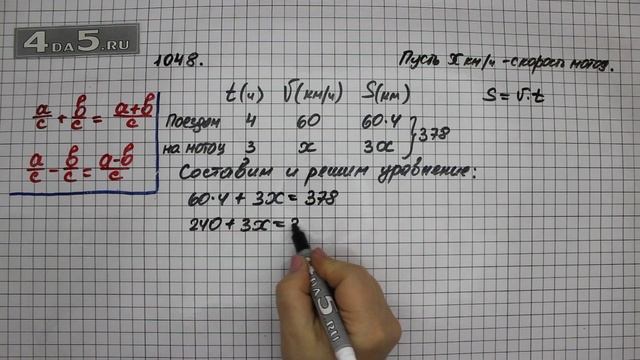 4DA5.RU
1048.
Пусть x км/ч - скорость мотоц.
a/c + b/c = a+b/c
a/c - b/c = a-b/c
t(ч) V(км/ч) S(км)
S = V·t
Поездом 4 60 60·4
на мотоц 3 x 3x
378
Составим и решим уравнение:
60·4 + 3x = 378
240 + 3x = 3
4DA5.RU